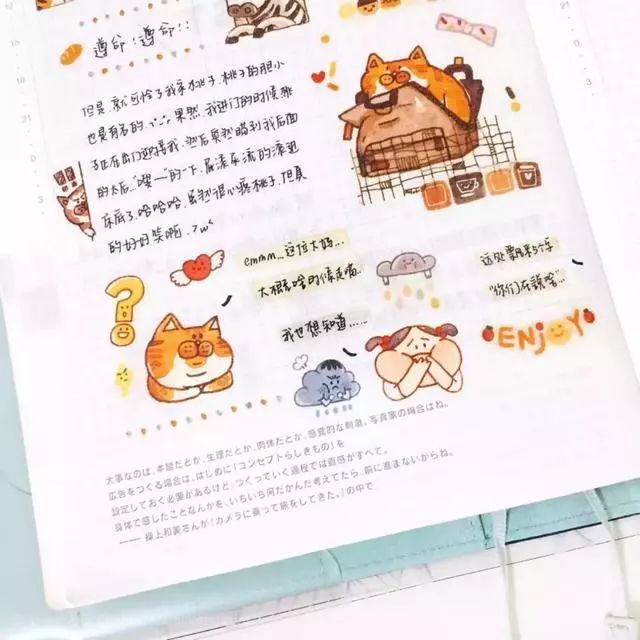 遵命！遵命！！
但是,就可怜了我家桃子,桃子的胆小
也是有名的,果然,我进门的时候桃
子正在出门迎接我,然后突然瞄到我后面
的太后,"嗖一"的一下,屁滚尿流的滚进
床底了,哈哈哈,虽然很心疼桃子,但真
的好好笑啊. >w<
emmm...这位大妈...
大概啥时候走喵...
我也想知道......
远处飘来
"你们在说啥..."
ENJOY
大事なのは、本能だとか、生理だとか、肉体だとか、感覚的な刺激。写真家の場合はね。
広告をつくる場合は、はじめに「コンセプトらしきもの」を
設定しておく必要があるけど、つくっていく過程では直感がすべて。
身体で感じたことなんかを、いちいち何だかんだ考えてたら、前に進まないからね。
—— 操上和美さんが『カメラに乗って旅をしてきた。』の中で